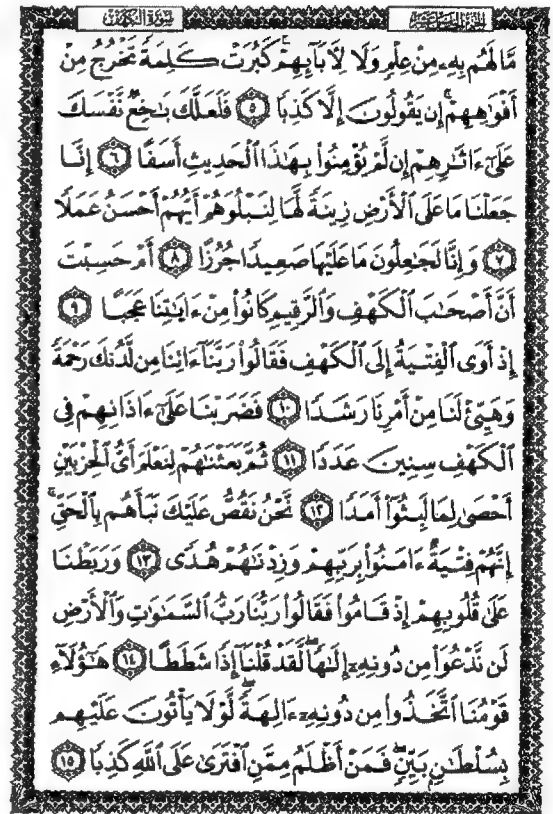 سُورَةُ الكَهْفِ الجُزْءُ الخَامِسَ عَشَرَ
مَّا لَهُم بِهِۦ مِنْ عِلْمٍ وَلَا لِأَبَآئِهِمْ ۚ كَبُرَتْ كَلِمَةً تَخْرُجُ مِنْ
أَفْوَٰهِهِمْ ۚ إِن يَقُولُونَ إِلَّا كَذِبًا ٥ فَلَعَلَّكَ بَٰخِعٌ نَّفْسَكَ
عَلَىٰٓ ءَاثَٰرِهِمْ إِن لَّمْ يُؤْمِنُوا۟ بِهَٰذَا ٱلْحَدِيثِ أَسَفًا ٦ إِنَّا
جَعَلْنَا مَا عَلَى ٱلْأَرْضِ زِينَةً لَّهَا لِنَبْلُوَهُمْ أَيُّهُمْ أَحْسَنُ عَمَلًا
٧ وَإِنَّا لَجَٰعِلُونَ مَا عَلَيْهَا صَعِيدًا جُرُزًا ٨ أَمْ حَسِبْتَ
أَنَّ أَصْحَٰبَ ٱلْكَهْفِ وَٱلرَّقِيمِ كَانُوا۟ مِنْ ءَايَٰتِنَا عَجَبًا ٩
إِذْ أَوَى ٱلْفِتْيَةُ إِلَى ٱلْكَهْفِ فَقَالُوا۟ رَبَّنَآ ءَاتِنَا مِن لَّدُنكَ رَحْمَةً
وَهَيِّئْ لَنَا مِنْ أَمْرِنَا رَشَدًا ١٠ فَضَرَبْنَا عَلَىٰٓ ءَاذَانِهِمْ فِى
ٱلْكَهْفِ سِنِينَ عَدَدًا ١١ ثُمَّ بَعَثْنَٰهُمْ لِنَعْلَمَ أَىُّ ٱلْحِزْبَيْنِ
أَحْصَىٰ لِمَا لَبِثُوٓا۟ أَمَدًا ١٢ نَّحْنُ نَقُصُّ عَلَيْكَ نَبَأَهُم بِٱلْحَقِّ ۚ
إِنَّهُمْ فِتْيَةٌ ءَامَنُوا۟ بِرَبِّهِمْ وَزِدْنَٰهُمْ هُدًى ١٣ وَرَبَطْنَا
عَلَىٰ قُلُوبِهِمْ إِذْ قَامُوا۟ فَقَالُوا۟ رَبُّنَا رَبُّ ٱلسَّمَٰوَٰتِ وَٱلْأَرْضِ
لَن نَّدْعُوَا۟ مِن دُونِهِۦٓ إِلَٰهًا ۖ لَّقَدْ قُلْنَآ إِذًا شَطَطًا ١٤ هَٰٓؤُلَآءِ
قَوْمُنَا ٱتَّخَذُوا۟ مِن دُونِهِۦٓ ءَالِهَةً ۖ لَّوْلَا يَأْتُونَ عَلَيْهِم
بِسُلْطَٰنٍۭ بَيِّنٍ ۖ فَمَنْ أَظْلَمُ مِمَّنِ ٱفْتَرَىٰ عَلَى ٱللَّهِ كَذِبًا ١٥